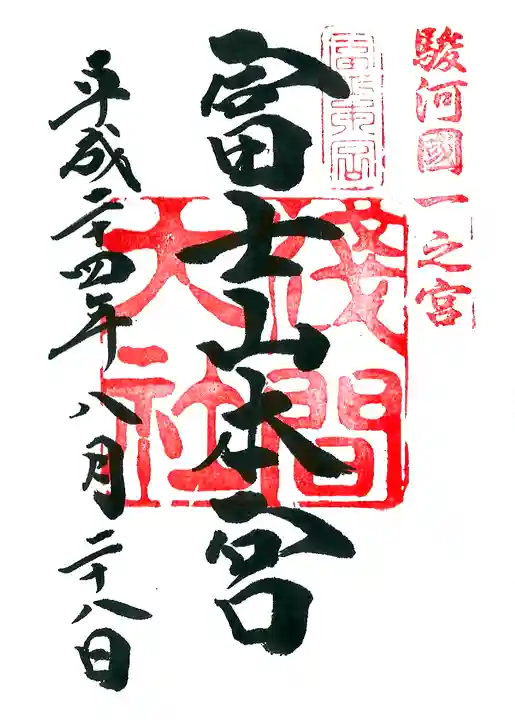 駿河國一之宮
富士山本宮
淺間
大社
平成二十四年八月二十八日